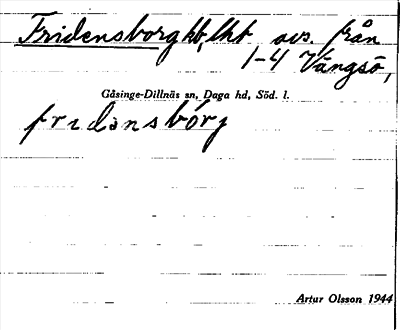 Fridensborg hb, lht avs. från
1-4 Vängsö,
Gåsinge-Dillnäs sn, Daga hd, Söd. l.
fridənsbórj
Artur Olsson 1944